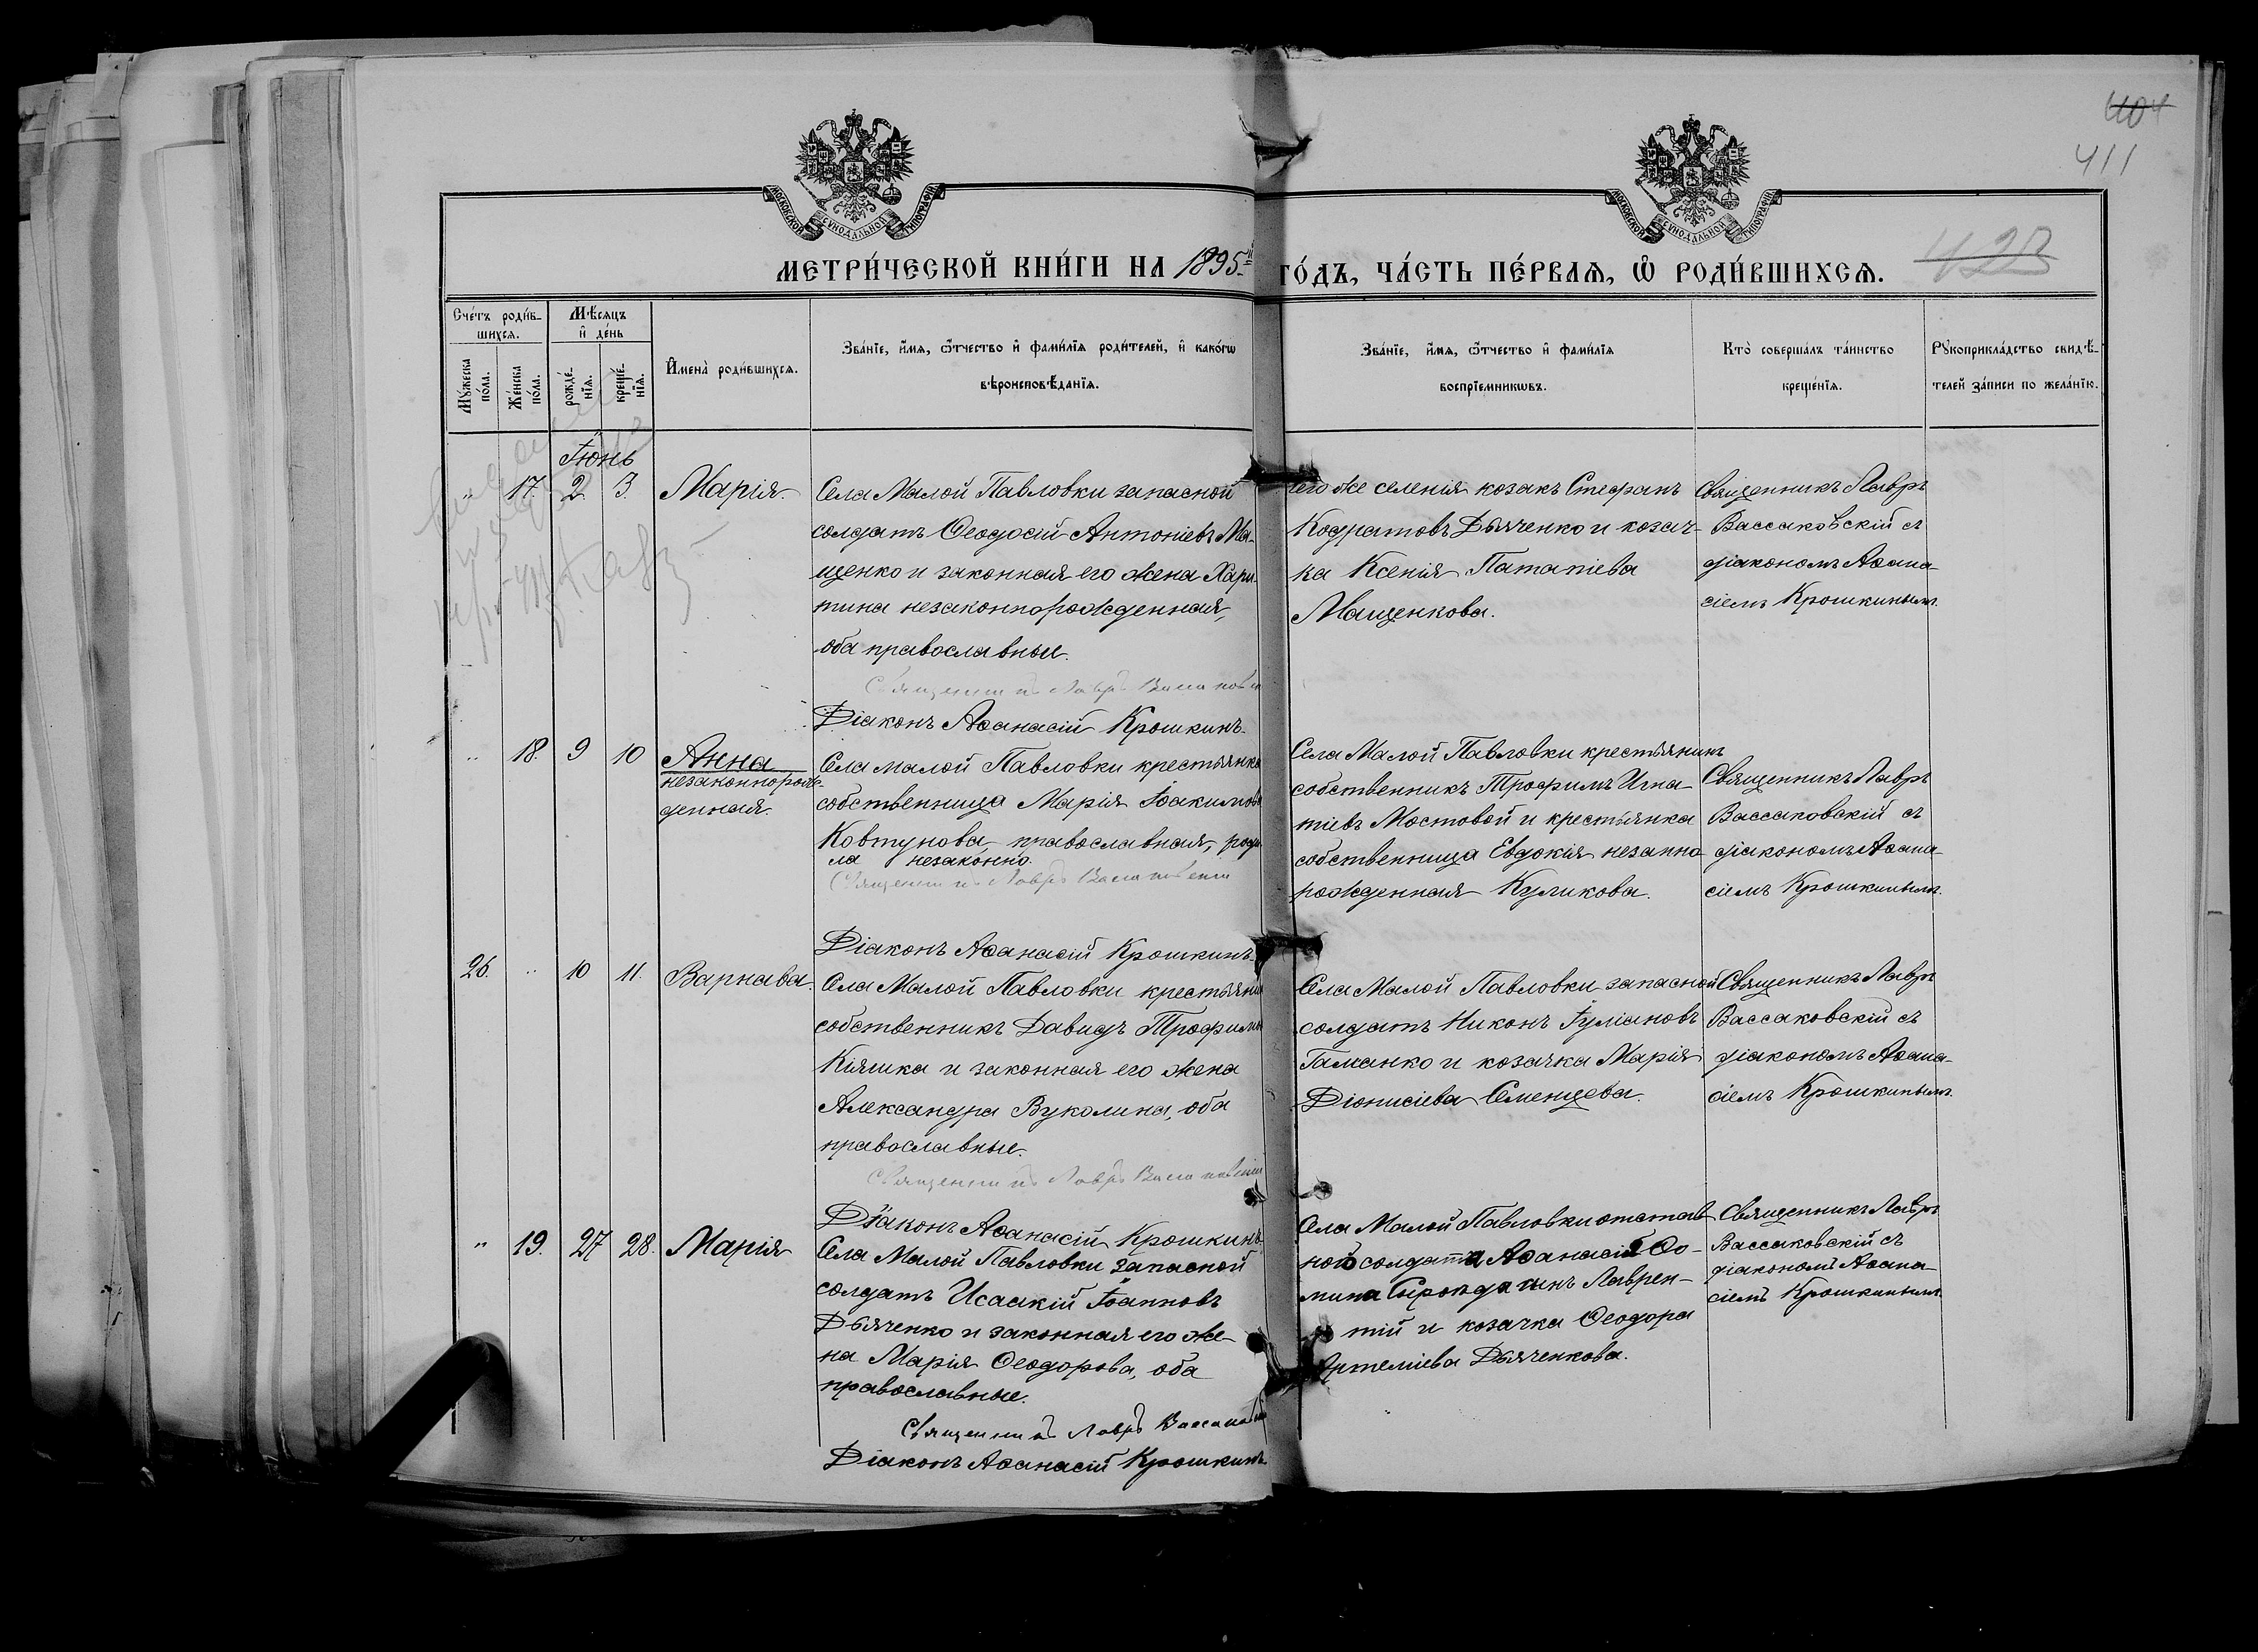 404
411
МОСКОВСКОЙ СѴНОДАЛЬНОЙ ТИПОГРАФІИ
МОСКОВСКОЙ СѴНОДАЛЬНОЙ ТИПОГРАФІИ
МЕТРИ́ЧЕСКОЙ КНИ́ГИ НА 1895й ГО́ДЪ, ЧА́СТЬ ПЕ́РВАѦ, Ѽ РОДИ́ВШИХСѦ.
423
Сче́тъ роди́в-
шихся.
Му́жеска
по́ла.
Же́нска
по́ла.
Мѣ́сяцъ
и҆ де́нь
рожде́-
нїя.
креще́-
нїя.
И҆мена̀ роди́вшихся.
Зва́нїе, и҆́мя, ѻ҆́тчество и҆ фами́лїя роди́телей, и҆ како́гѡ
вѣроисповѣ́данїя.
Зва́нїе, и҆́мя, ѻ҆́тчество и҆ фами́лїя
воспрїе́мникѡвъ.
Кто̀ соверша́лъ та́инство
креще́нїя.
Рꙋкоприкла́дство свидѣ́-
телей за́писи по жела́нїю.
Іюнь
" 17. 2 3. Марія
Села Малой Павловки запасной
солдатъ Ѳеодосій Антоніевъ Ма-
щенко и законная его жена Хари-
тина незаконнорожденная,
оба православные.
Священникъ Лавръ
Діаконъ Аѳанасій Крошкинъ
его же селенія козакъ Стефанъ
Кодратовъ Дьяченко и козач-
ка Ксенія Патапіева
Мащенкова.
Священникъ Лавръ
Вассаковскій съ
діакономъ Аѳана-
сіемъ Крошкинымъ.
" 18. 9 10 Анна
незаконнорож-
денная.
Села Малой Павловки крестьянка
собственница Марія Іоакимова
Ковтунова, православная, роди-
ла незаконно.
Священникъ Лавръ
Діаконъ Аѳанасій Крошкинъ
Села Малой Павловки крестьянинъ
собственникъ Трофимъ Игна-
тіевъ Мостовой и крестьянка
собственница Евдокія незакно
рожденная Куликова.
Священникъ Лавръ
Вассаковскій съ
діакономъ Аѳана-
сіемъ Крошкинымъ.
26. " 10 11. Варнава.
Села Малой Павловки крестьянин
собственникъ Давидъ Трофимов
Кіяшка и законная его жена
Александра Вуколина, оба
православные.
Священникъ Лавръ
Діаконъ Аѳанасій Крошкинъ
Села Малой Павловки запасной
солдатъ Никонъ Іуліановъ
Гаманко и козачка Марія
Діонисіева Семенцева.
Священникъ Лавръ
Вассаковскій съ
діакономъ Аѳана-
сіемъ Крошкинымъ.
" 19. 27 28. Марія
Села Малой Павловки запасной
солдатъ Исаакій Іоанновъ
Дьяченко и законная его же-
на Марія Ѳеодорова, оба
православные.
Священникъ Лавръ
Діаконъ Аѳанасій Крошкинъ
Села Малой Павловки отстав
ного солдата Аѳанасія Ѳо-
мина сынъ Лаврен-
тій и козачка Ѳеодора
Артеміева Дьяченкова.
Священникъ Лавръ
Вассаковскій съ
діакономъ Аѳана-
сіемъ Крошкинымъ.